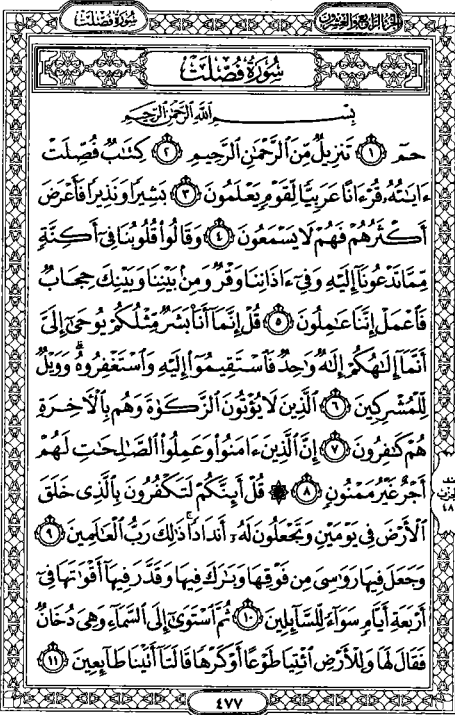 سُورَةُ فُصِّلَتْ
الجزء الرابع والعشرون
سُورَةُ فُصِّلَتْ
بِسْمِ اللَّهِ الرَّحْمَٰنِ الرَّحِيمِ
حمٓ ١ تَنزِيلٌ مِّنَ ٱلرَّحْمَٰنِ ٱلرَّحِيمِ ٢ كِتَٰبٌ فُصِّلَتْ
ءَايَٰتُهُۥ قُرْءَانًا عَرَبِيًّا لِّقَوْمٍ يَعْلَمُونَ ٣ بَشِيرًا وَنَذِيرًا فَأَعْرَضَ
أَكْثَرُهُمْ فَهُمْ لَا يَسْمَعُونَ ٤ وَقَالُوا۟ قُلُوبُنَا فِىٓ أَكِنَّةٍ
مِّمَّا تَدْعُونَآ إِلَيْهِ وَفِىٓ ءَاذَانِنَا وَقْرٌ وَمِنۢ بَيْنِنَا وَبَيْنِكَ حِجَابٌ
فَٱعْمَلْ إِنَّنَا عَٰمِلُونَ ٥ قُلْ إِنَّمَآ أَنَا۠ بَشَرٌ مِّثْلُكُمْ يُوحَىٰٓ إِلَىَّ
أَنَّمَآ إِلَٰهُكُمْ إِلَٰهٌ وَٰحِدٌ فَٱسْتَقِيمُوٓا۟ إِلَيْهِ وَٱسْتَغْفِرُوهُ ۗ وَوَيْلٌ
لِّلْمُشْرِكِينَ ٦ ٱلَّذِينَ لَا يُؤْتُونَ ٱلزَّكَوٰةَ وَهُم بِٱلْءَاخِرَةِ
هُمْ كَٰفِرُونَ ٧ إِنَّ ٱلَّذِينَ ءَامَنُوا۟ وَعَمِلُوا۟ ٱلصَّٰلِحَٰتِ لَهُمْ
أَجْرٌ غَيْرُ مَمْنُونٍ ٨ ۞ قُلْ أَئِنَّكُمْ لَتَكْفُرُونَ بِٱلَّذِى خَلَقَ
ٱلْأَرْضَ فِى يَوْمَيْنِ وَتَجْعَلُونَ لَهُۥٓ أَندَادًا ۚ ذَٰلِكَ رَبُّ ٱلْعَٰلَمِينَ ٩
وَجَعَلَ فِيهَا رَوَٰسِىَ مِن فَوْقِهَا وَبَٰرَكَ فِيهَا وَقَدَّرَ فِيهَآ أَقْوَٰتَهَا فِىٓ
أَرْبَعَةِ أَيَّامٍ سَوَآءً لِّلسَّآئِلِينَ ١٠ ثُمَّ ٱسْتَوَىٰٓ إِلَى ٱلسَّمَآءِ وَهِىَ دُخَانٌ
فَقَالَ لَهَا وَلِلْأَرْضِ ٱئْتِيَا طَوْعًا أَوْ كَرْهًا قَالَتَآ أَتَيْنَا طَآئِعِينَ ١١
نصف
الحزب
٤٨
٤٧٧